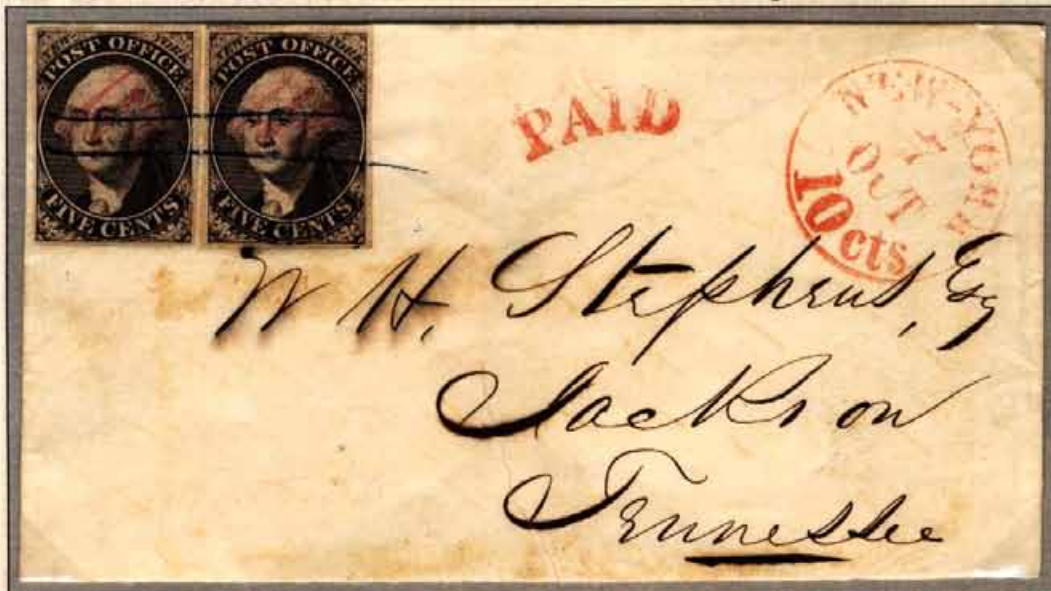 POST OFFICE
FIVE CENTS
POST OFFICE
FIVE CENTS
PAID
NEW-YORK
OCT
10 cts
W H. Stephens, Esq
Jackson
Tennessee